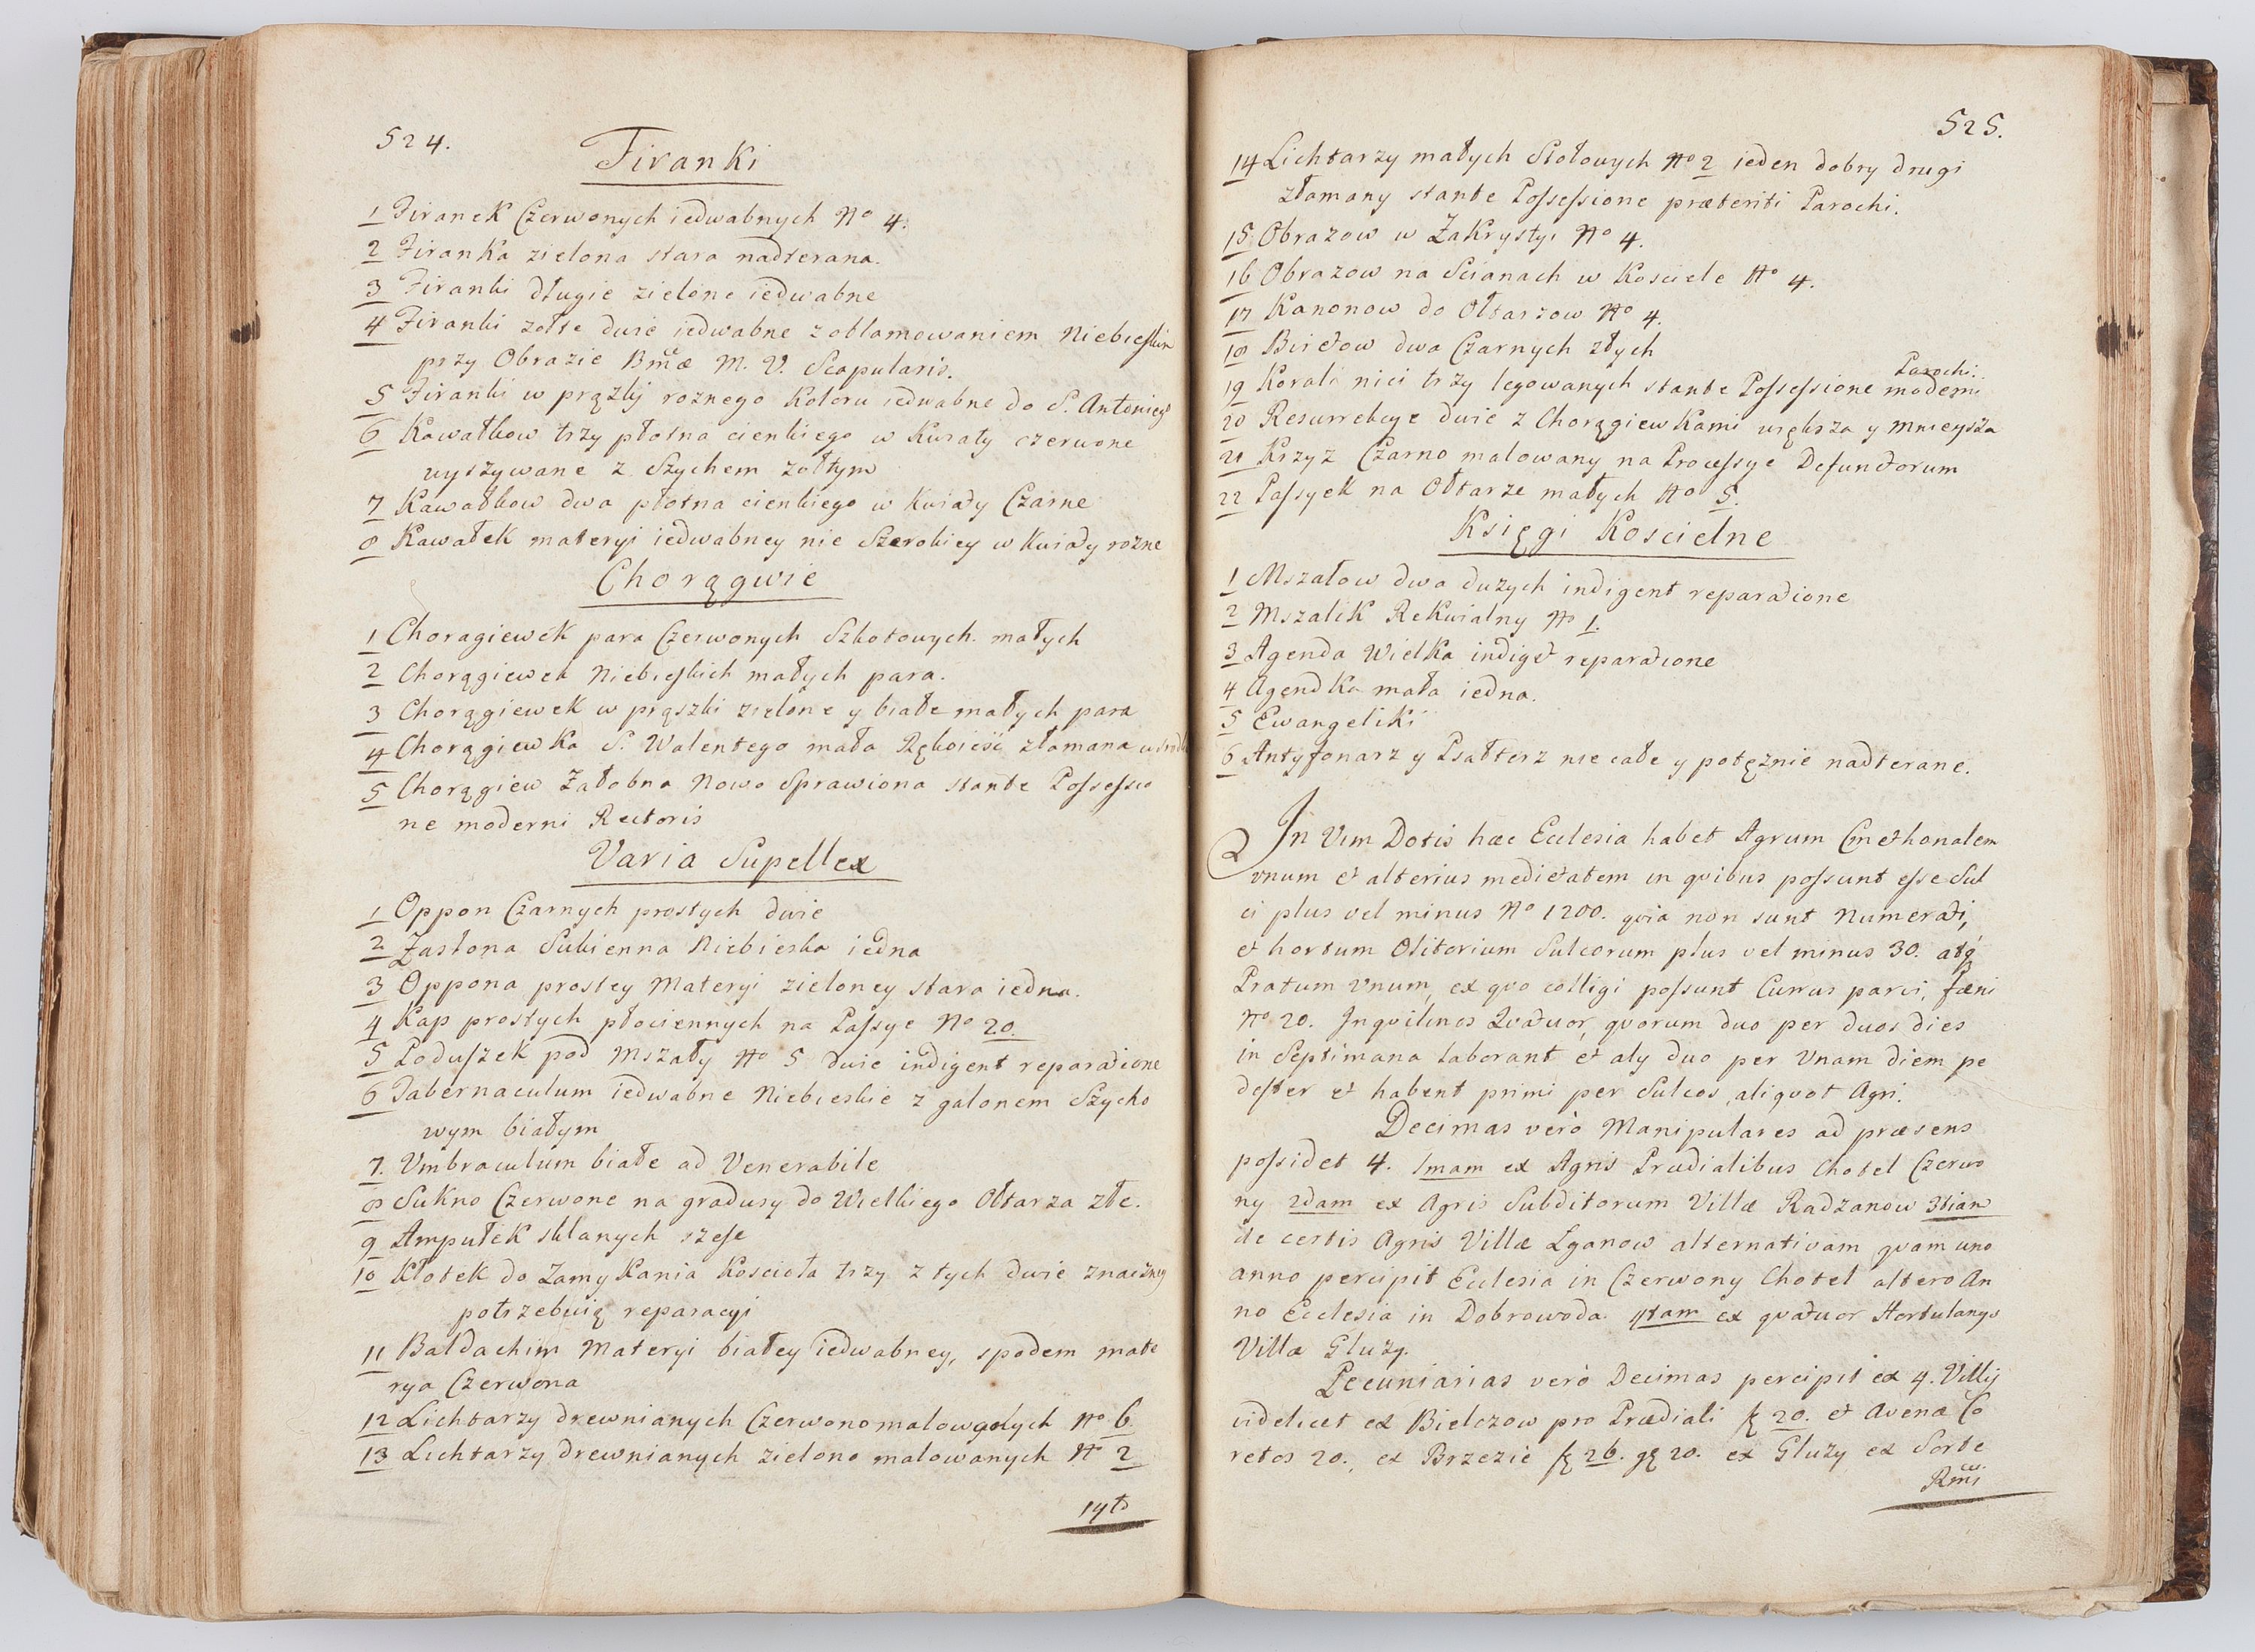 524.
Firanki
1 Firanek Czerwonych iedwabnych No 4.
2 Firanka zielona stara nadterana.
3 Firanki długie zielone iedwabne
4 Firanki zołte dwie iedwabne z oblamowaniem Niebieskim
przy Obrazie Bmæ M. V. Scapularis.
5 Firanki w prążki roznego Koloru iedwabne do S. Antoniego
6 Kawałkow trzy płotna cienkiego w Kwiaty czerwone
wyszywane z Szychem zołtym
7 Kawałkow dwa płotna cienkiego w Kwiaty Czarne
8 Kawałek materyi iedwabney nie Szerokiey w Kwiaty rozne
Chorągwie
1 Choragiewek para Czerwonych Szkotowych małych
2 Chorągiewek Niebieskich małych para.
3 Chorągiewek w prąszki zielone y białe małych para
4 Chorągiewka S. Walentego mała Rękoiesć złamana
5 Chorągiew Załobna Nowo Sprawiona stante Possessio
ne moderni Rectoris
Varia Supellex
1 Oppon Czarnych prostych dwie
2 Zasłona Sukienna Niebieska iedna
3 Oppona prostey Materyi zieloney stara iedna.
4 Kap prostych płociennych na Passye No 20.
5 Poduszek pod Mszały No 5 dwie indigent reparatione
6 Tabernaculum iedwabne Niebieskie z galonem Szycho
wym białym
7. Vmbraculum białe ad Venerabile
8 Sukno Czerwone na gradusy do Wielkiego Ołtarza złe.
9 Ampułek sklanych szesc
10 Kłotek do Zamykania Koscioła trzy z tych dwie znaczney
potrzebuią reparacyi
11 Baldachim Materyi białey iedwabney, spodem mate
rya Czerwona
12 Lichtarzy drewnianych Czerwono malowanych No 6.
13 Lichtarzy drewnianych zielono malowanych No 2
14to
525.
14 Lichtarzy małych Stołowych No 2 ieden dobry drugi
złamany stante Possessione præteriti Parochi.
15 Obrazow w Zakrystyi No 4.
16 Obrazow na Scianach w Kosciele No 4.
17 Kanonow do Ołtarzow No 4.
18 Biretow dwa Czarnych złych
19 Korali nici trzy legowanych stante Possessione moderni Parochi.
20 Resurrekcye dwie z Chorągiewkami większa y Mnieysza
21 Krzyz Czarno malowany na Processye Defunctorum
22 Passyek na Ołtarze małych No 5.
Księgi Koscielne
1 Mszałow dwa duzych indigent reparatione
2 Mszalik Rekwialny No 1.
3 Agenda Wielka indiget reparatione
4 Agendka mała iedna.
5 Ewangeliki
6 Antyfonarz y Psałterz nie całe y potęznie nadterane.
In Vim Dotis hæc Ecclesia habet Agrum Cmethonalem
vnum et alterius medietatem in qvibus possunt esse Sul
ci plus vel minus No 1200. qvia non sunt Numerati,
et hortum Olitorium Sulcorum plus vel minus 30. atq
Pratum Vnum, ex qvo colligi possunt Currus parvi, fæni
No 20. Inqvilinos Qvatuor, qvorum duo per duos dies
in Septimana laborant et aly duo per Vnam diem pe
dester et habent primi per Sulcos aliqvot Agri.
Decimas verò Manipulares ad præsens
possidet 4. 1mam ex Agris Prædialibus Chotel Czerwo
ny 2dam ex Agris Subditorum Villæ Radzanow 3tiam
de certis Agris Villæ Łganow alternativam qvam uno
anno percipit Ecclesia in Czerwony Chotel altero An
no Ecclesia in Dobrowoda. 4tam ex qvatuor Hortulanys
Villæ Gluzy.
Pecuniarias verò Decimas percipit ex 4. Villij
videlicet ex Bielczow pro Prædiali 20. et Avenæ Co
retos 20., ex Brzezie 26. 20. ex Gluzy ex Sorte
Rmi